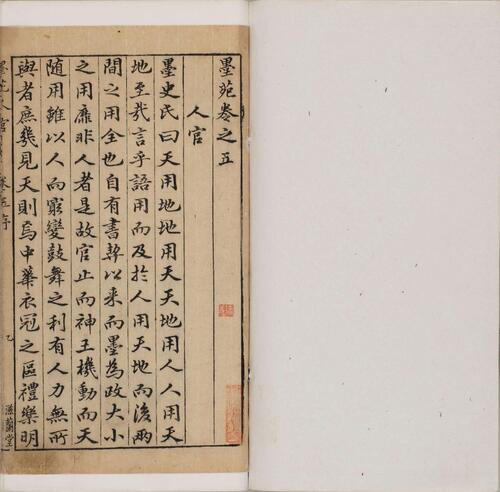 墨苑卷之五
人官
墨史氏曰天用地地用天天地用人人用天
地至哉言乎語用而及於人用天地而後兩
間之用全也自有書契以來而墨為政大小
之用靡非人者是故官止而神王機動而天
隨用雖以人而窮變鼓舞之利有人力無所
與者庶幾見天則焉中華衣冠之區禮樂明
墨苑人官
序
滋蘭堂